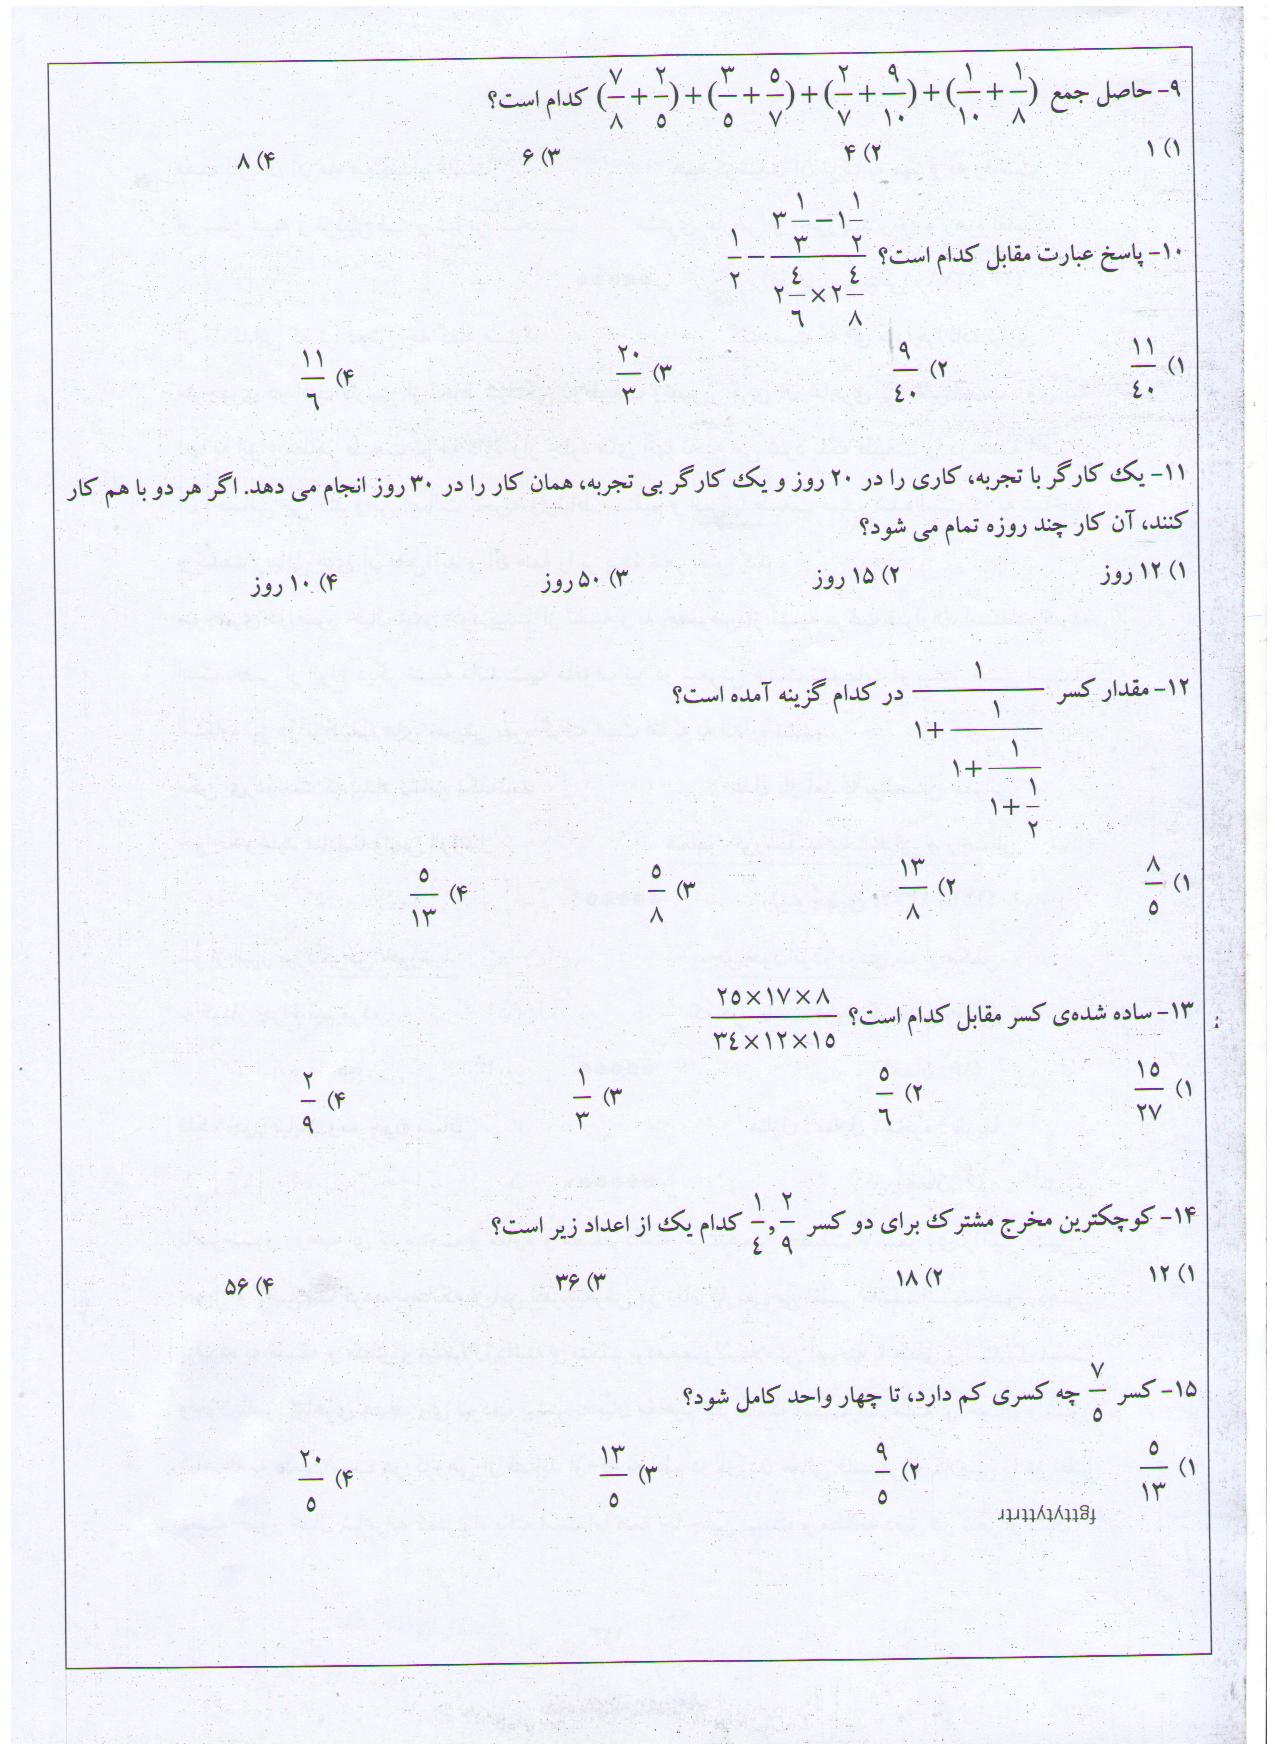 ۹- حاصل جمع (۷/۸ + ۲/۵) + (۳/۵ + ۵/۷) + (۲/۷ + ۹/۱۰) + (۱/۱۰ + ۱/۸) کدام است؟
۱) ۱ ۲) ۴ ۳) ۶ ۴) ۸
۱۰- پاسخ عبارت مقابل کدام است؟ ۱/۲ − (۳ ۱/۳ − ۱ ۱/۲)/(۲ ۴/۶ × ۲ ۴/۸)
۱) ۱۱/۴۰ ۲) ۹/۴۰ ۳) ۲۰/۳ ۴) ۱۱/۶
۱۱- یک کارگر با تجربه، کاری را در ۲۰ روز و یک کارگر بی تجربه، همان کار را در ۳۰ روز انجام می دهد. اگر هر دو با هم کار
کنند، آن کار چند روزه تمام می شود؟
۱) ۱۲ روز ۲) ۱۵ روز ۳) ۵۰ روز ۴) ۱۰ روز
۱۲- مقدار کسر ۱/(۱+۱/(۱+۱/(۱+۱/۲))) در کدام گزینه آمده است؟
۱) ۸/۵ ۲) ۱۳/۸ ۳) ۵/۸ ۴) ۵/۱۳
۱۳- ساده شده‌ی کسر مقابل کدام است؟ (۲۵×۱۷×۸)/(۳۴×۱۲×۱۵)
۱) ۱۵/۲۷ ۲) ۵/۶ ۳) ۱/۳ ۴) ۲/۹
۱۴- کوچکترین مخرج مشترک برای دو کسر ۱/۴ , ۲/۹ کدام یک از اعداد زیر است؟
۱) ۱۲ ۲) ۱۸ ۳) ۳۶ ۴) ۵۶
۱۵- کسر ۷/۵ چه کسری کم دارد، تا چهار واحد کامل شود؟
۱) ۵/۱۳ ۲) ۹/۵ ۳) ۱۳/۵ ۴) ۲۰/۵